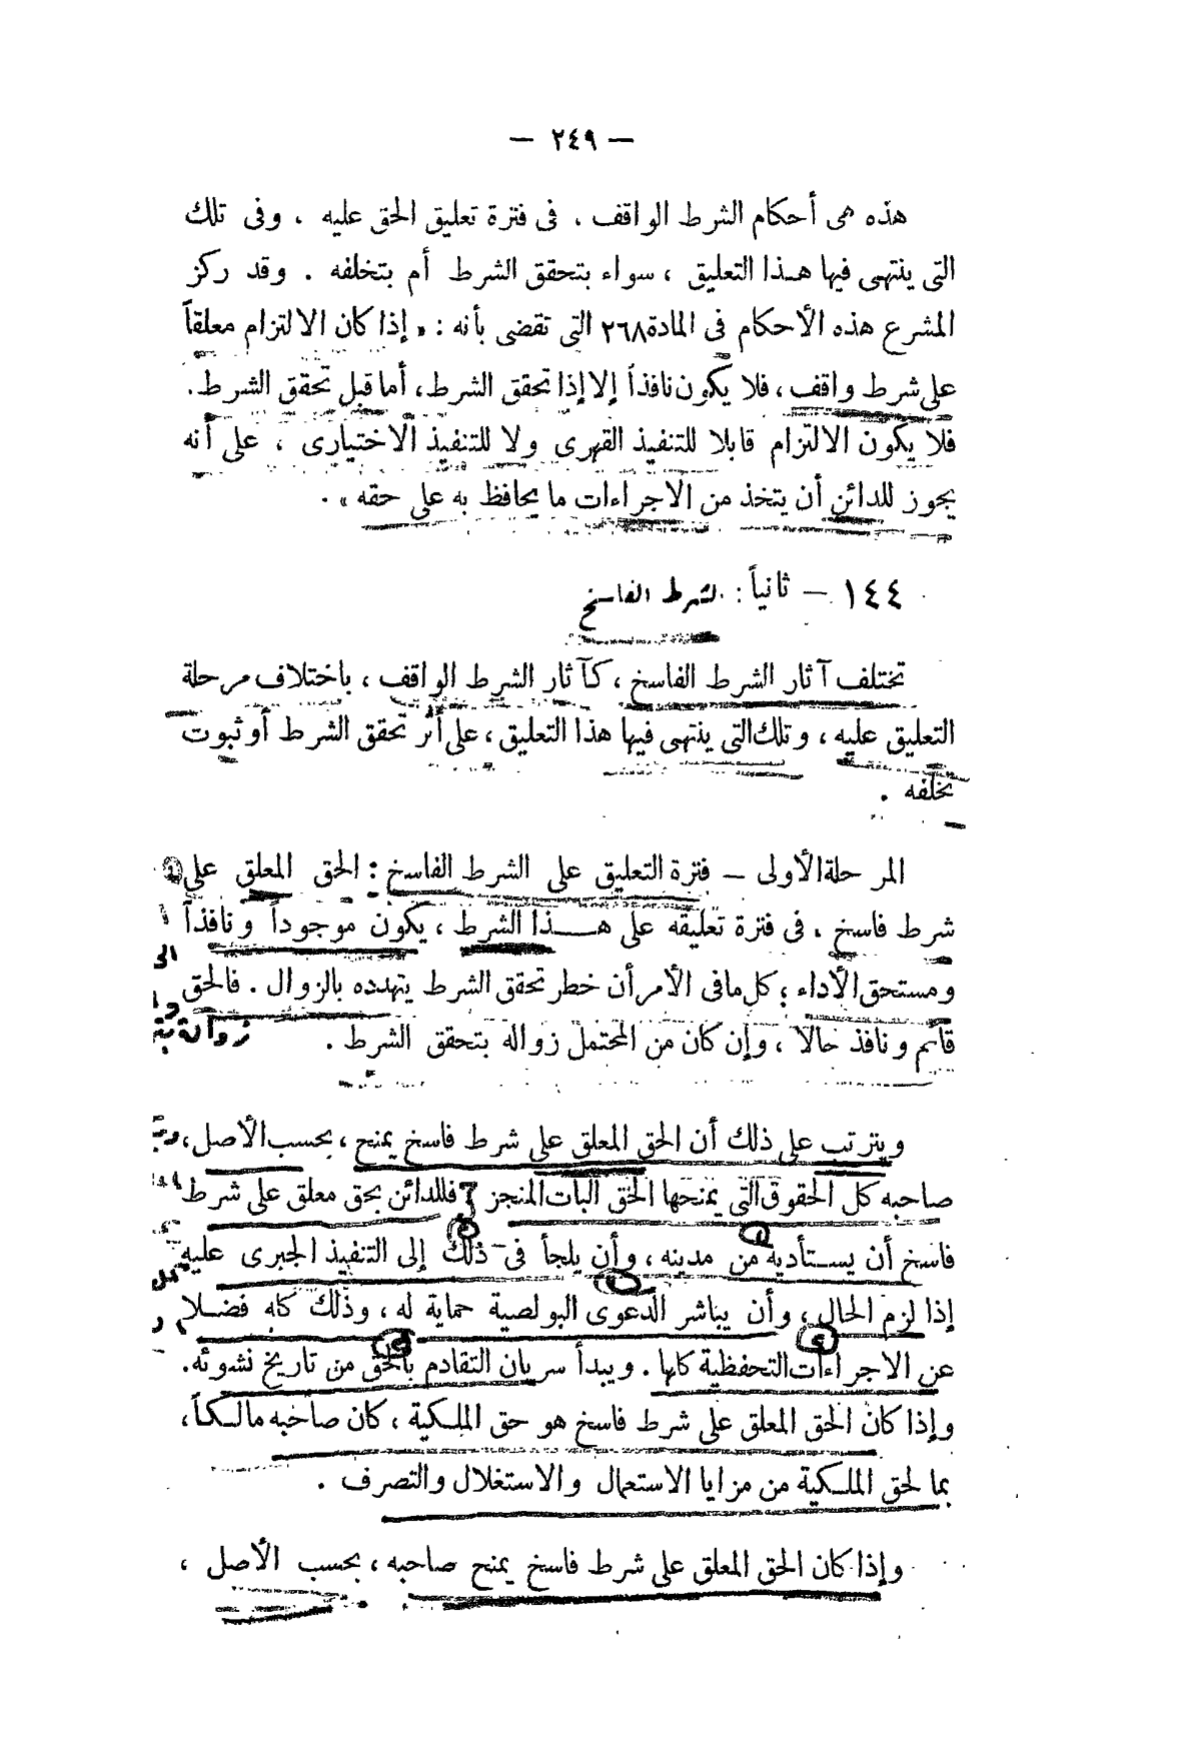 — ٢٤٩ —
هذه هى أحكام الشرط الواقف ، فى فترة تعليق الحق عليه ، وفى تلك
التى ينتهى فيها هـذا التعليق ، سواء بتحقق الشرط أم بتخلفه . وقد ركز
المشرع هذه الأحكام فى المادة ٢٦٨ التى تقضى بأنه : « إذا كان الالتزام معلقاً
على شرط واقف ، فلا يكون نافذاً إلا إذا تحقق الشرط ، أما قبل تحقق الشرط .
فلا يكون الالتزام قابلا للتنفيذ القهرى ولا للتنفيذ الاختيارى ، على أنه
يجوز للدائن أن يتخذ من الاجراءات ما يحافظ به على حقه » .
١٤٤ — ثانياً : الشرط الفاسخ
تختلف آثار الشرط الفاسخ ، كآثار الشرط الواقف ، باختلاف مرحلة
التعليق عليه ، وتلك التى ينتهى فيها هذا التعليق ، على أثر تحقق الشرط أو ثبوت
تخلفه .
المرحلة الأولى — فترة التعليق على الشرط الفاسخ : الحق المعلق على
شرط فاسخ ، فى فترة تعليقه على هـــذا الشرط ، يكون موجوداً ونافذاً
ومستحق الأداء ؛ كل مافى الأمر أن خطر تحقق الشرط يتهدده بالزوال . فالحق
قائم ونافذ حالا ، وإن كان من المحتمل زواله بتحقق الشرط .
ويترتب على ذلك أن الحق المعلق على شرط فاسخ يمنح ، بحسب الأصل ،
صاحبه كل الحقوق التى يمنحها الحق البات المنجز ؟ فللدائن بحق معلق على شرط
فاسخ أن يستأديه من مدينه ، وأن يلجأ فى ذلك إلى التنفيذ الجبرى عليه
إذا لزم الحال ، وأن يباشر الدعوى البولصية حماية له ، وذلك كله فضـلا
عن الاجراءات التحفظية كلها . ويبدأ سريان التقادم بالحق من تاريخ نشوئه .
وإذا كان الحق المعلق على شرط فاسخ هو حق الملكية ، كان صاحبه مالكاً ،
بما لحق الملكية من مزايا الاستعمال والاستغلال والتصرف .
وإذا كان الحق المعلق على شرط فاسخ يمنح صاحبه ، بحسب الأصل ،